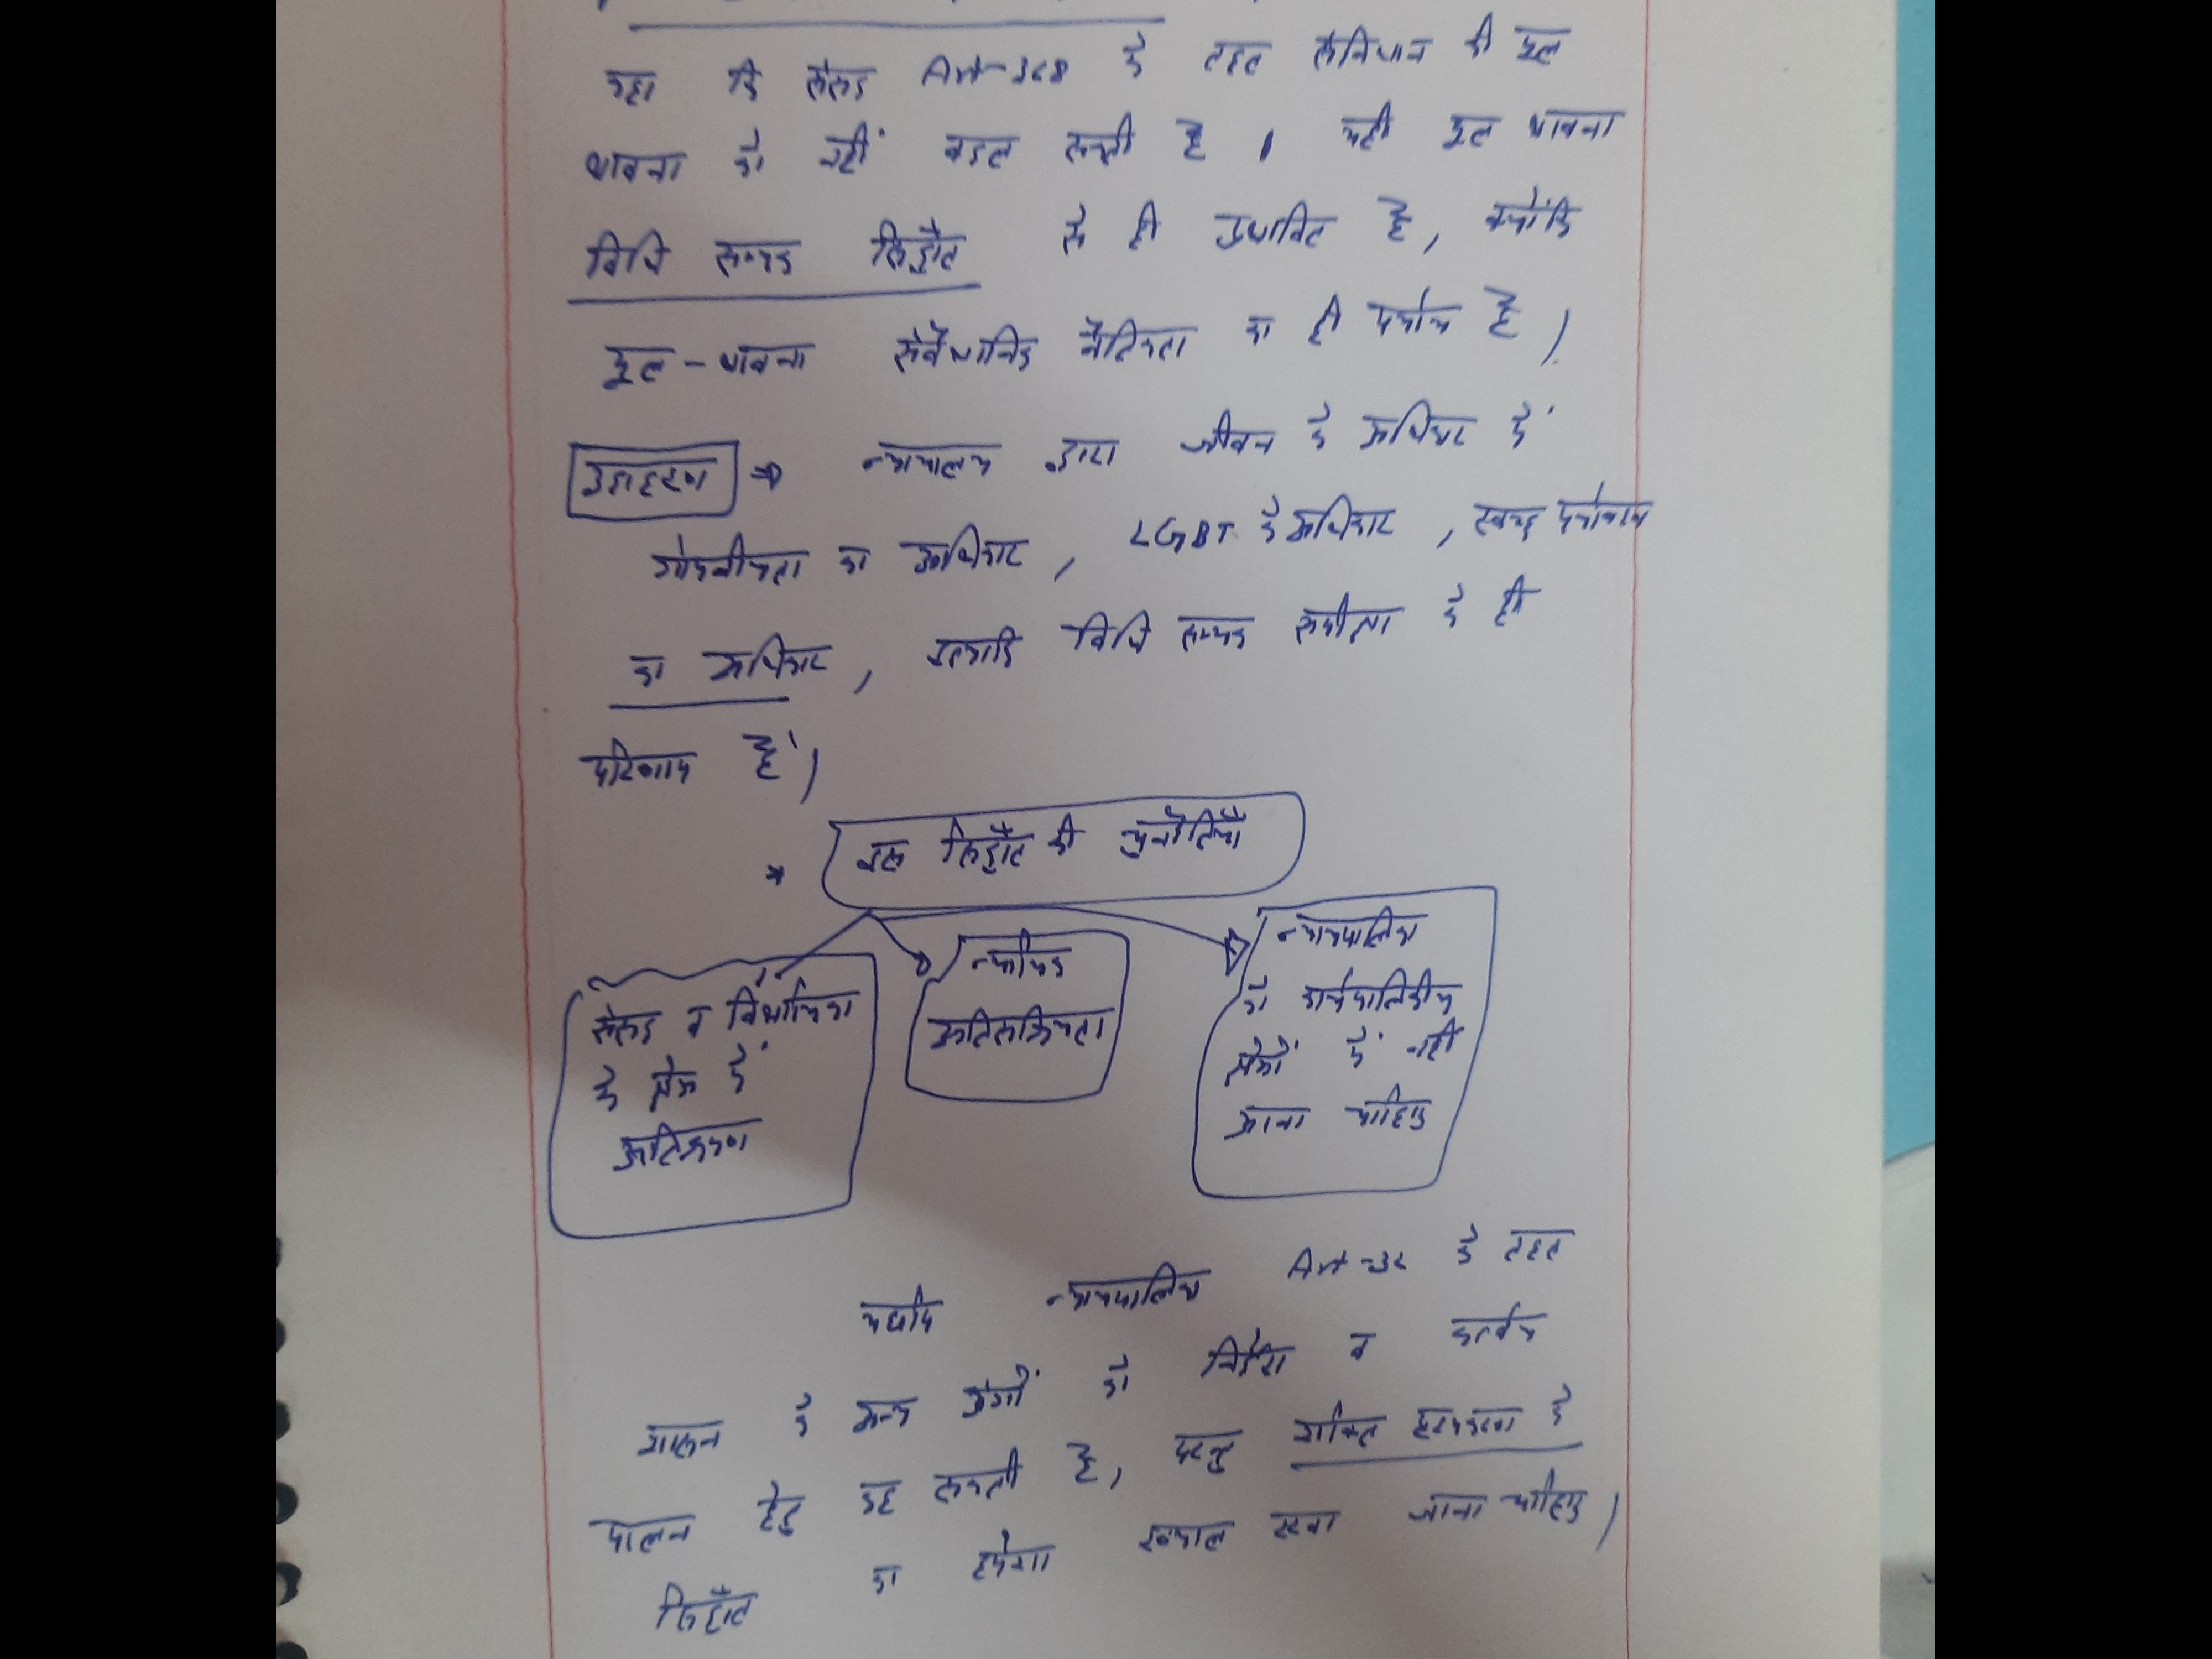 कहा कि संसद Art-368 के तहत संविधान की मूल
भावना को नहीं बदल सकती है । यही मूल भावना
विधि सम्यक सिद्धांत से ही प्रभावित है, क्योंकि
मूल-भावना संवैधानिक नैतिकता का ही पर्याय है ।
उदाहरण ⇒ न्यायालय द्वारा जीवन के अधिकार में
गोपनीयता का अधिकार, LGBT के अधिकार, स्वच्छ पर्यावरण
का अधिकार, इत्यादि विधि सम्यक समीक्षा के ही
परिणाम हैं ।
* इस सिद्धांत की चुनौतियाँ
संसद व विधायिका
के क्षेत्र में
अतिक्रमण
न्यायिक
अतिसक्रियता
न्यायपालिका
को कार्यपालिकीय
क्षेत्रों में नहीं
आना चाहिए
यद्यपि न्यायपालिका Art-32 के तहत
शासन के अन्य अंगों को निर्देश व कर्तव्य
पालन हेतु कह सकती है, परन्तु शक्ति पृथक्करण के
सिद्धांत का हमेशा ख्याल रखा जाना चाहिए ।